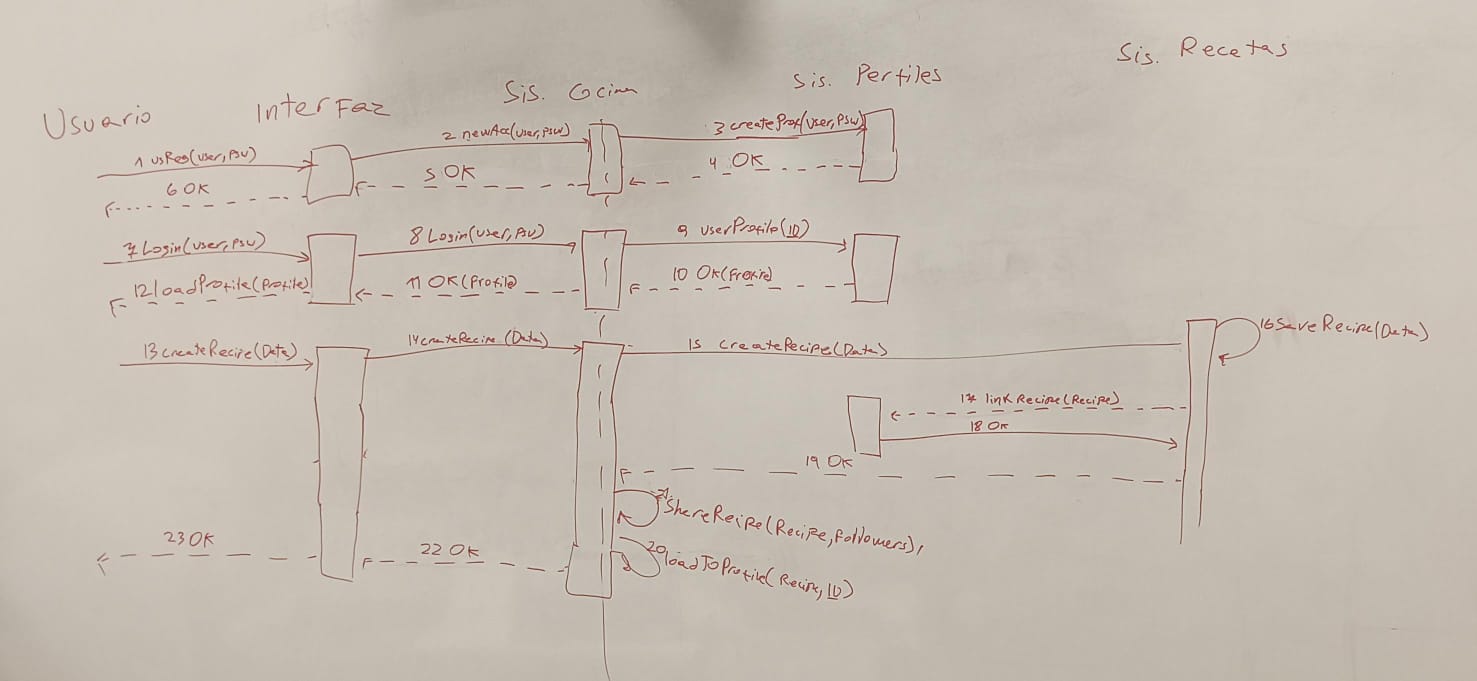 Usuario
Interfaz
Sis. Cocina
Sis. Perfiles
Sis. Recetas
1 usReg(user,psw)
2 newAcc(user,psw)
3 createProf(user,psw)
4 OK
5 OK
6 OK
7 Login(user,psw)
8 Login(user,psw)
9 userProfile(ID)
10 OK(Profile)
11 OK(Profile)
12 loadProfile(Profile)
13 createRecipe(Data)
14 createRecipe(Data)
15 createRecipe(Data)
16 SaveRecipe(Data)
17 linkRecipe(Recipe)
18 OK
19 OK
21 ShareRecipe(Recipe,followers),
20 loadToProfile(Recipe,ID)
22 OK
23 OK